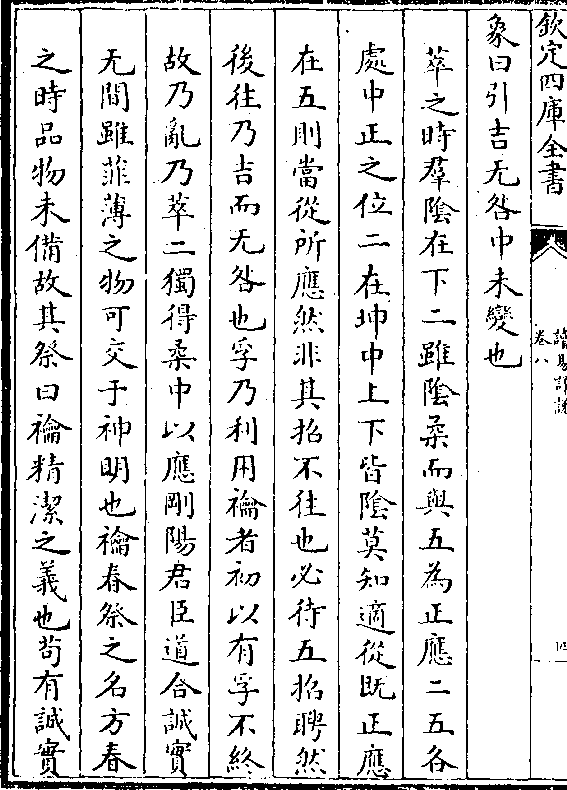 欽定四庫全書
讀易詳說
卷八
象曰引吉无咎中未變也
萃之時羣陰在下二雖陰柔而與五為正應二五各
處中正之位二在坤中上下皆陰莫知適從既正應
在五則當從所應然非其招不往也必待五招聘然
後往乃吉而无咎也孚乃利用禴者初以有孚不終
故乃亂乃萃二獨得柔中以應剛陽君臣道合誠實
无間雖菲薄之物可交于神明也禴春祭之名方春
之時品物未備故其祭曰禴精潔之義也苟有誠實